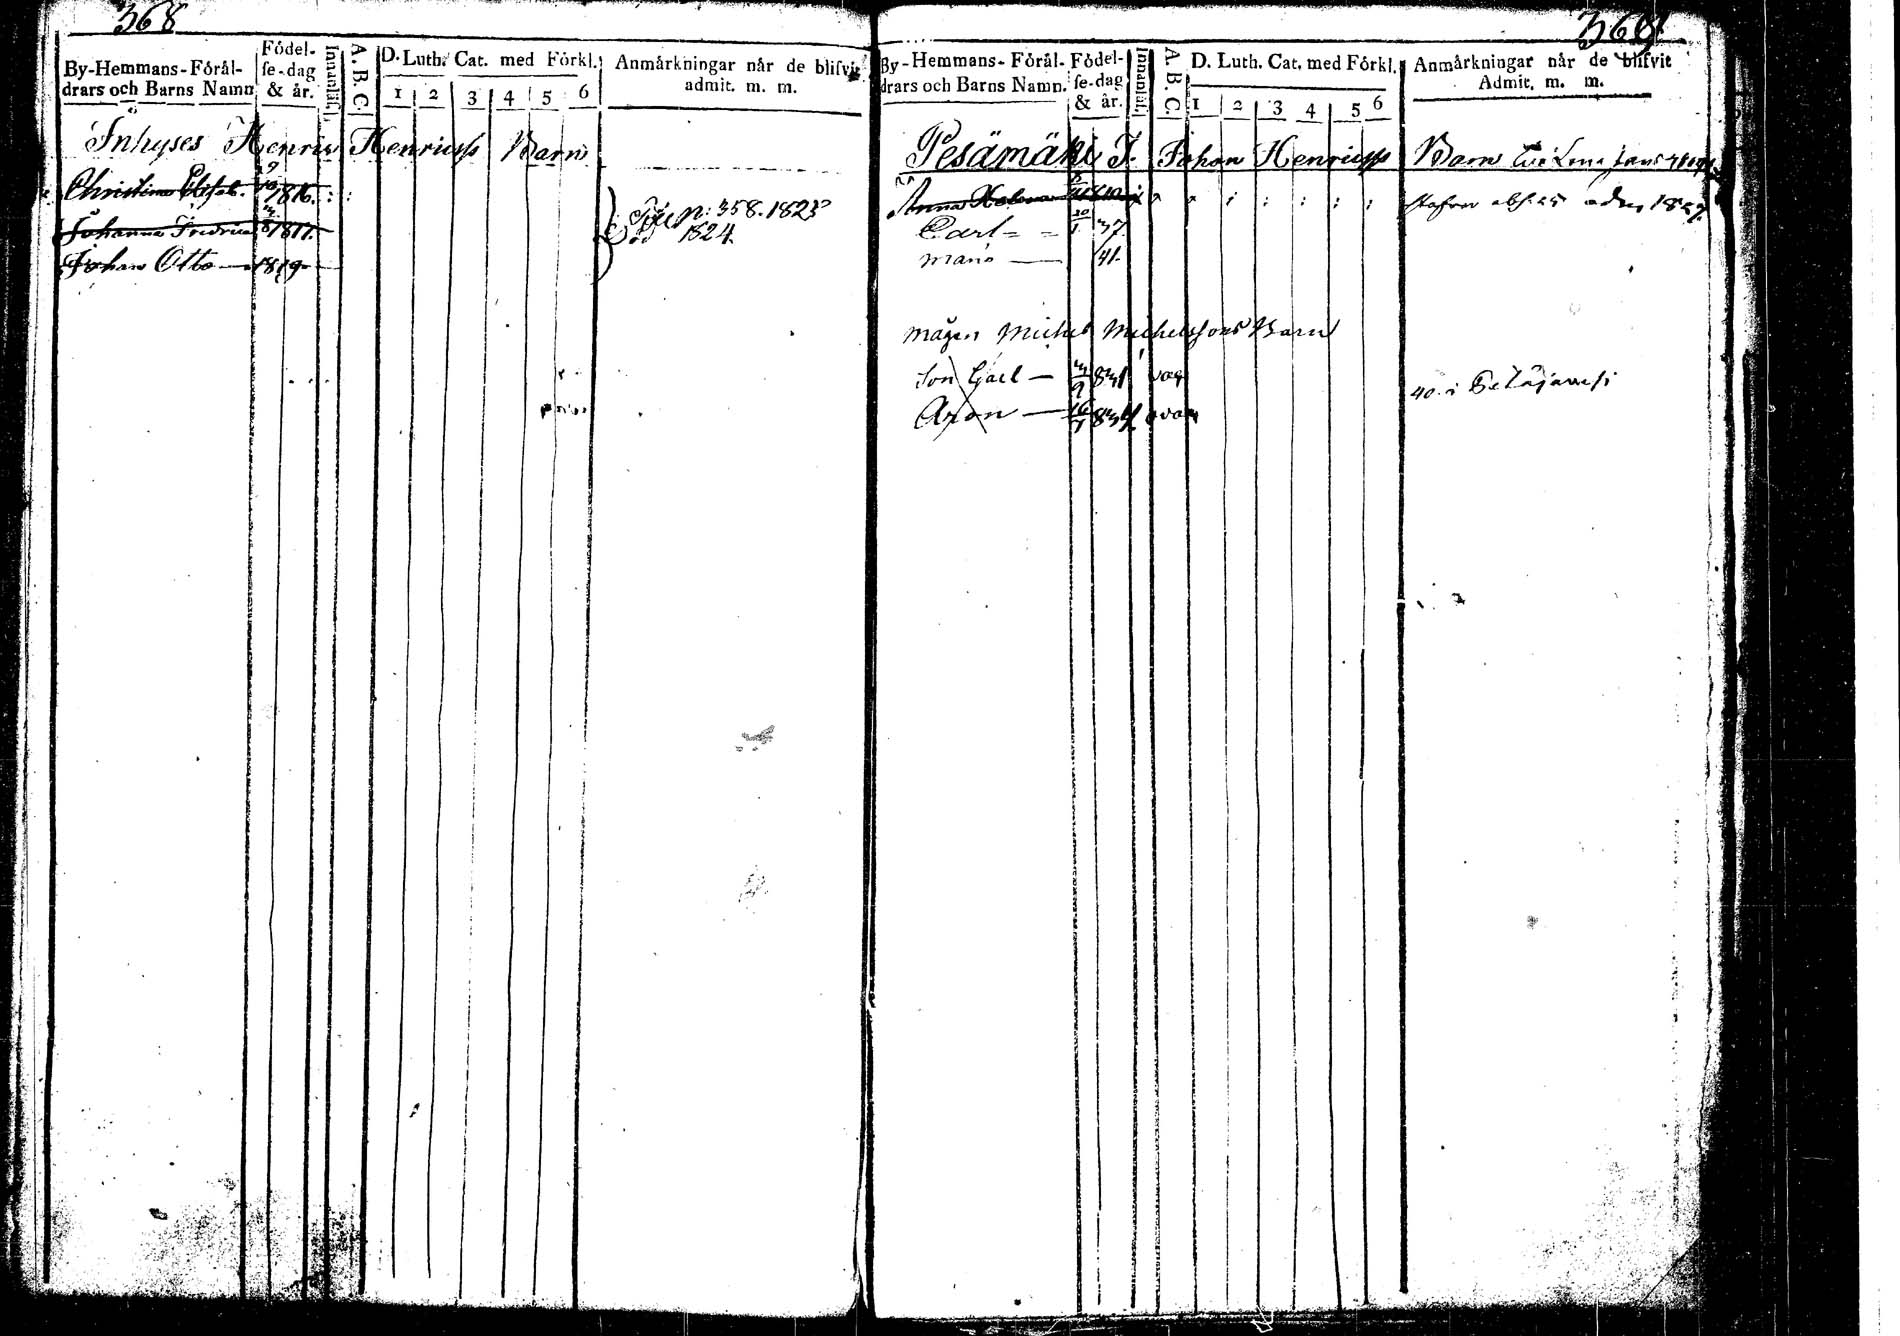 368
By-Hemmans-Förål-
drars och Barns Namn
Födel-
se-dag
& år.
Innanläsn.
A. B. C.
D. Luth. Cat. med Förkl.
1 2 3 4 5 6
Anmärkningar når de blifvit
admit. m. m.
Inhyses Henric Henricss Barn
Christina Elisab. 1816.
Johanna Fredrica 1817.
Johan Otto — 1819
n: 358. 1823
Död 1824.
369
By-Hemmans-Förål-
drars och Barns Namn.
Födel-
se-dag
& år.
Innanläsn.
A. B. C.
D. Luth. Cat. med Förkl.
1 2 3 4 5 6
Anmärkningar når de blifvit
Admit. m. m.
Pesämäki J. Johan Henricss Barn
Anna Helena 1810 1827.
Carl 20/1 37.
Maria — 41.
mågen Michel Michelssons Barn
Son Carl — 3/9 831
Aron — 16/7 834
40. i